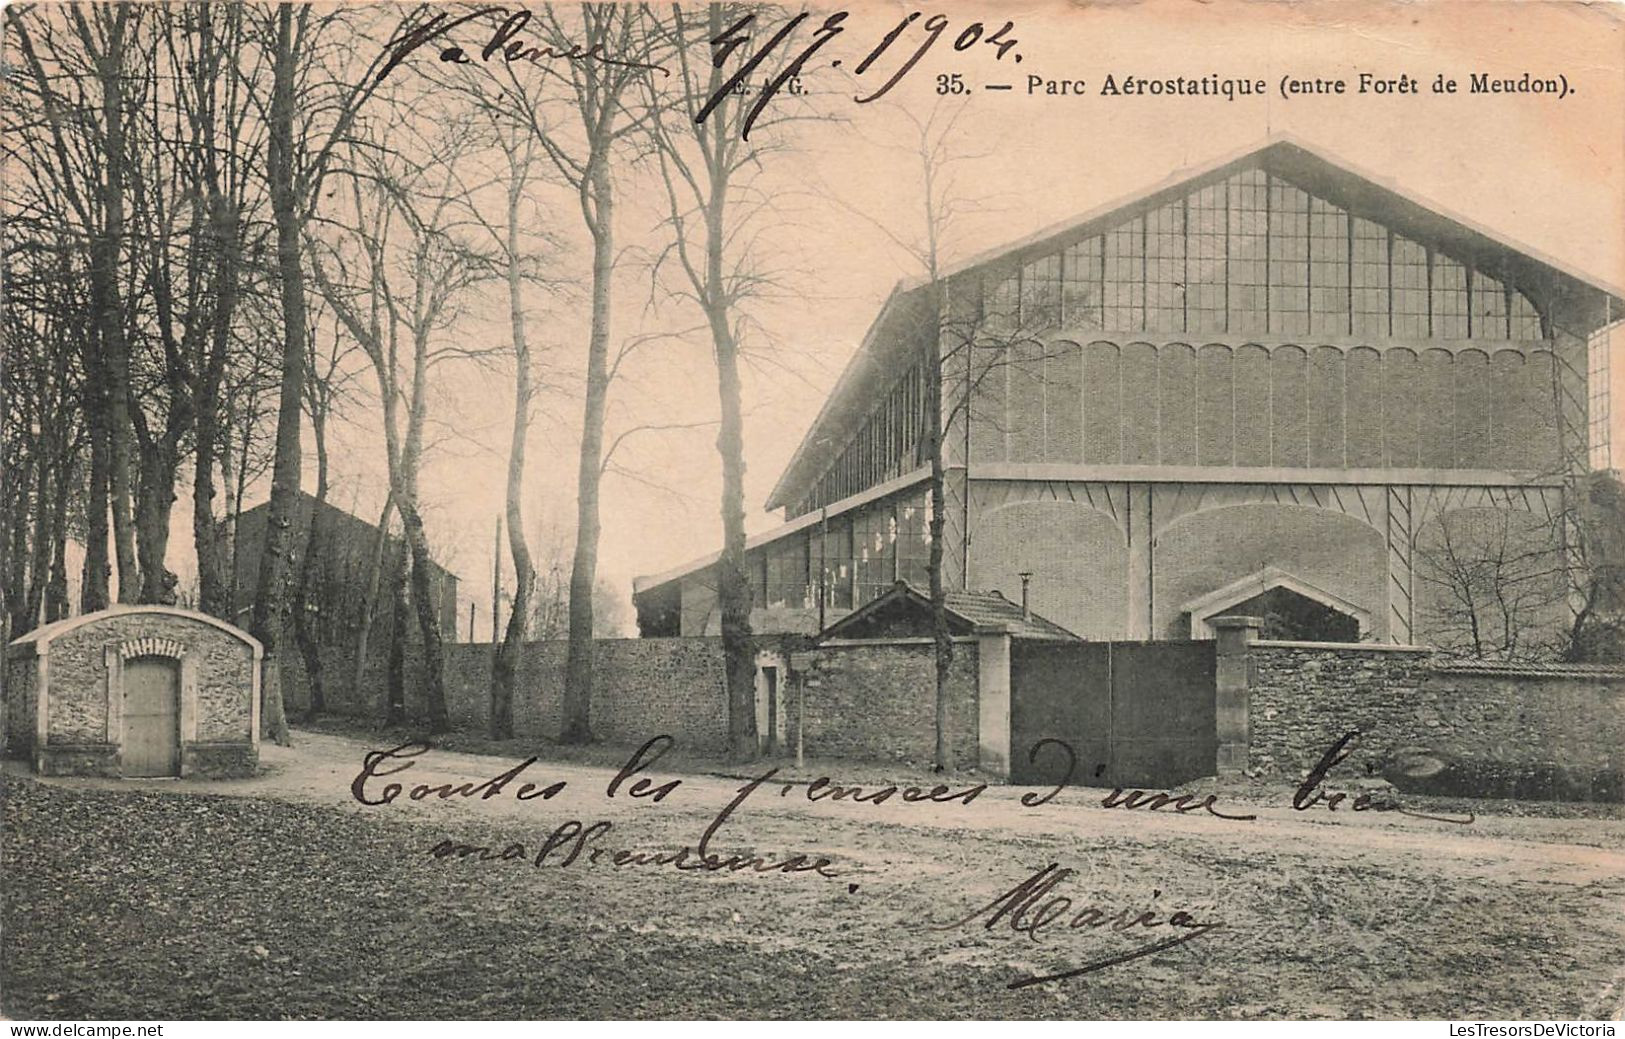 Valence 4/7. 1904.
E. A. G. 35. — Parc Aérostatique (entre Forêt de Meudon).
Toutes les pensées d'une bien
malheureuse.
Maria
LesTresorsDeVictoria